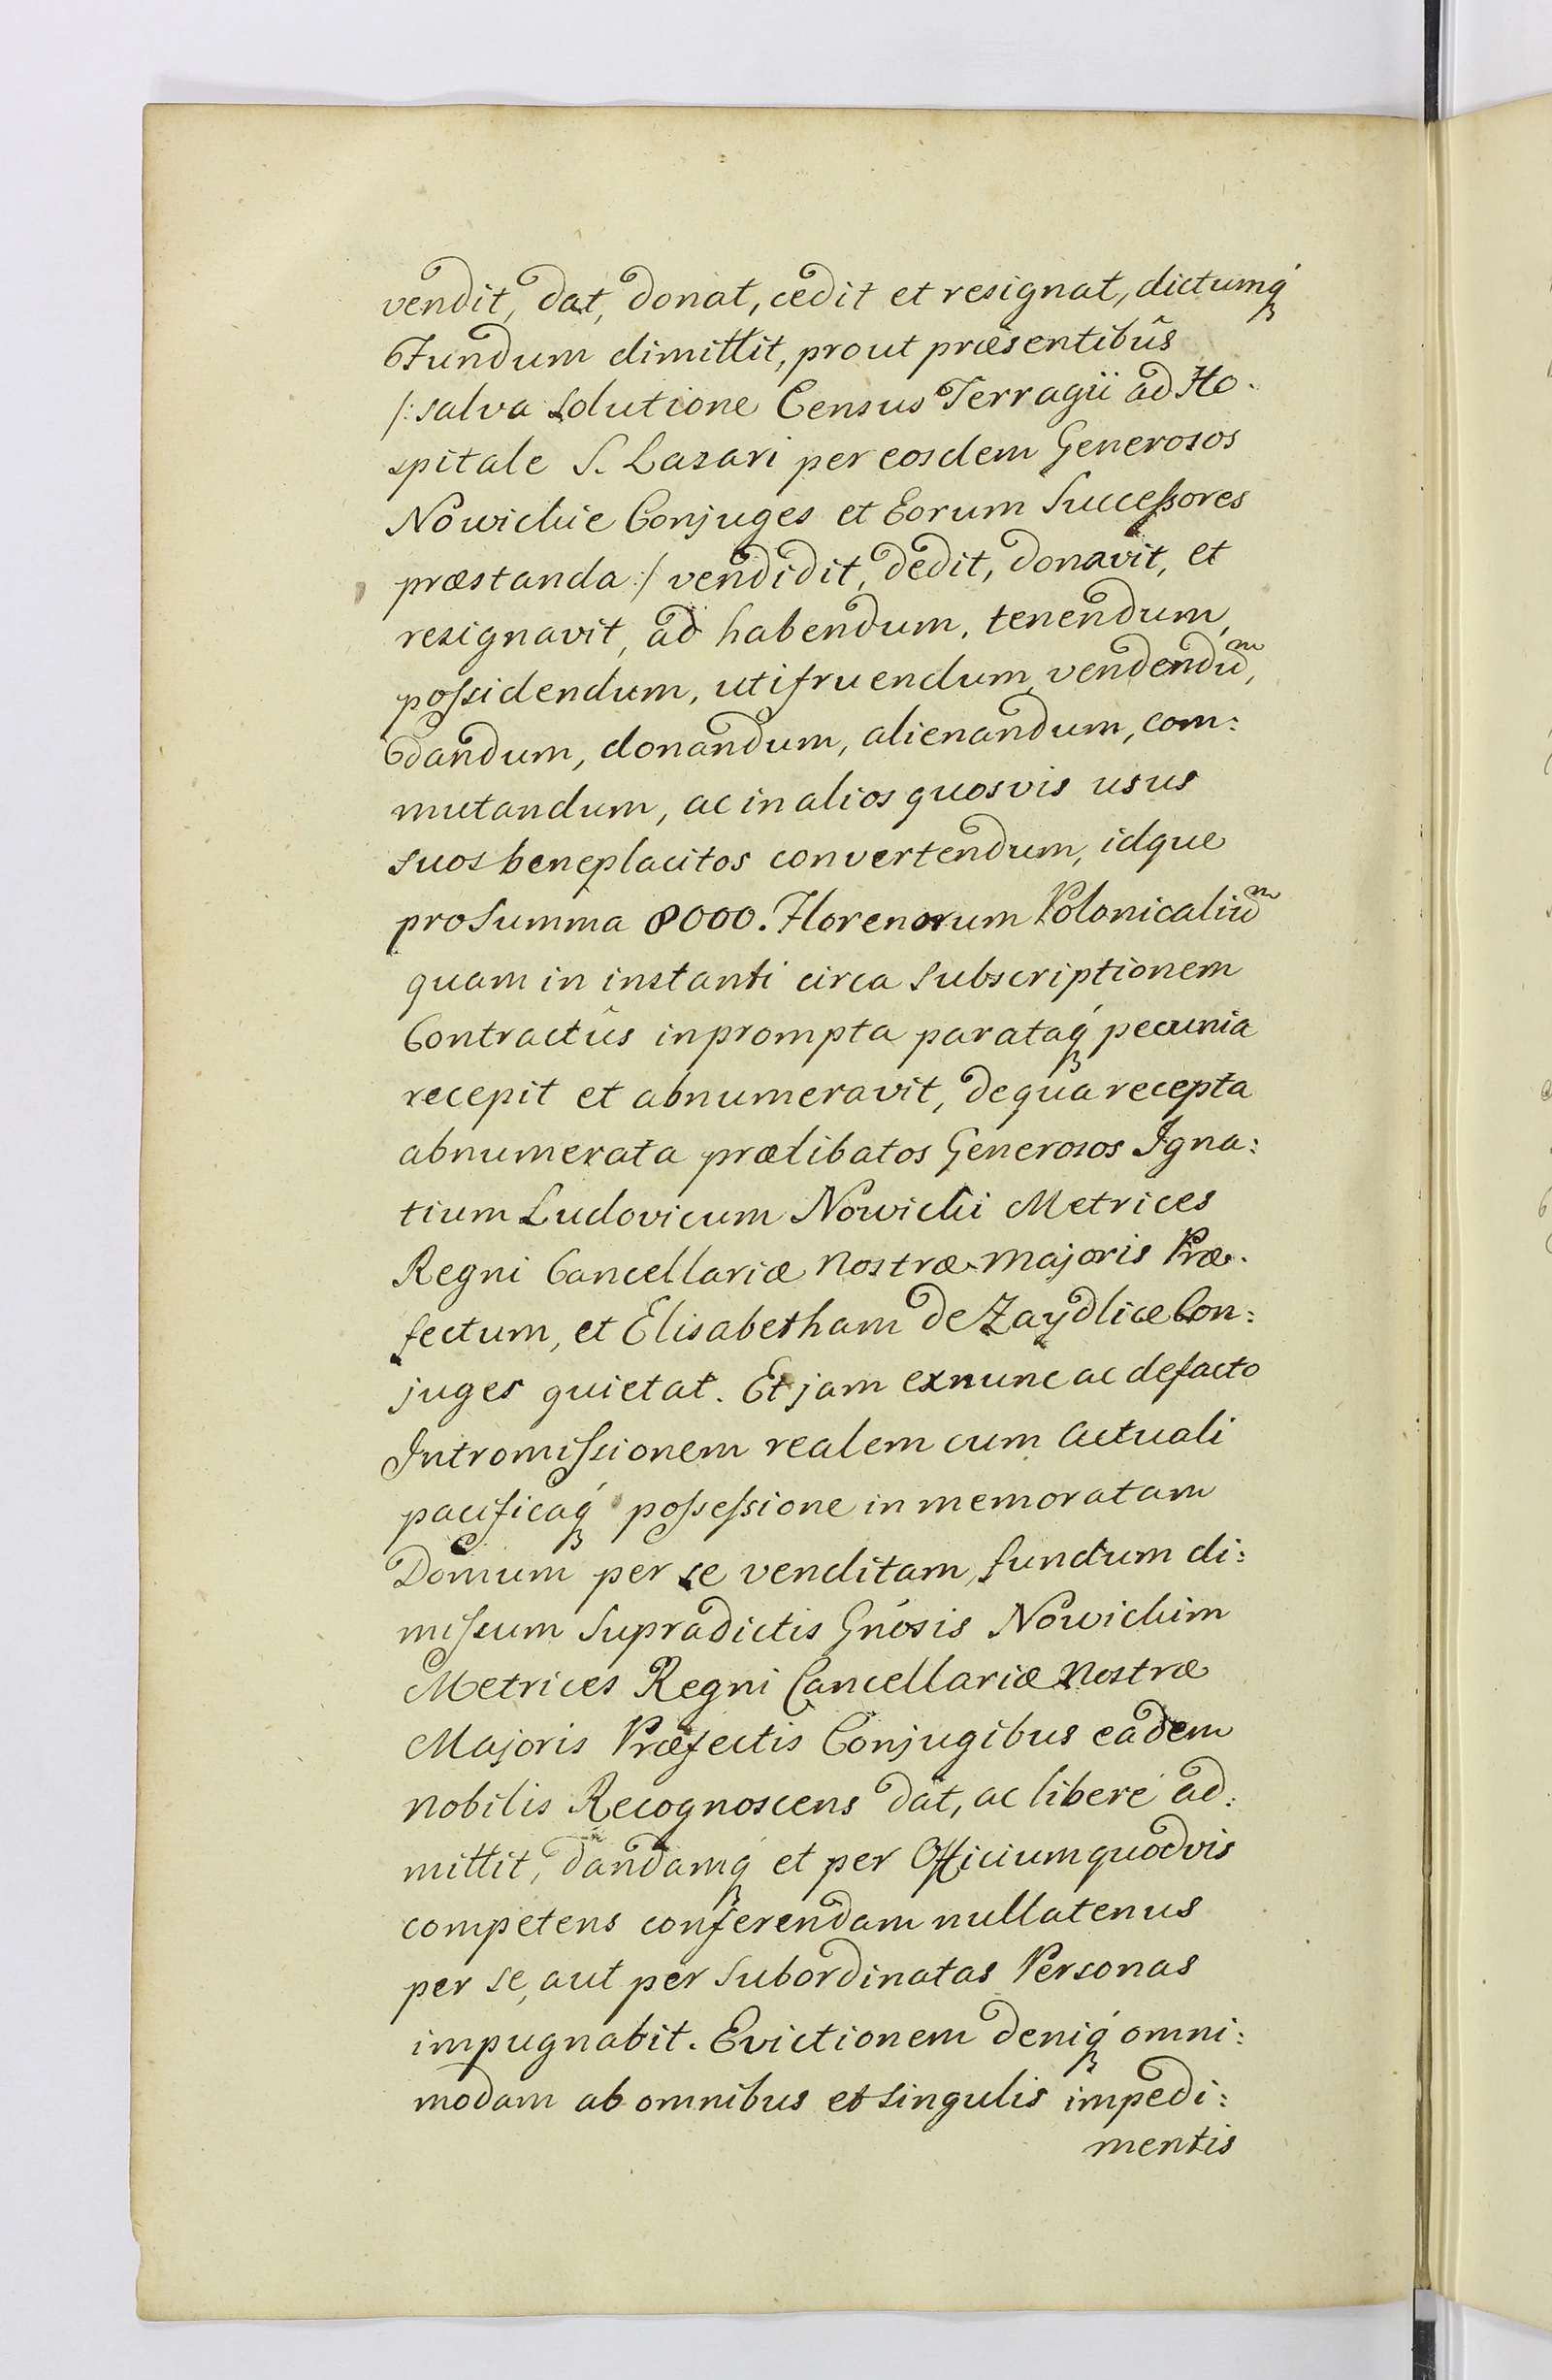 vendit, dat, donat, cedit et resignat, dictumq́
Fundum dimittit, prout præsentibûs
/: salva solutione Census Terragii ad Ho-
spitale S. Lazari per eosdem Generosos
Nowickie Conjuges et Eorum Successores
præstanda :/ vendidit, dedit, donavit, et
resignavit, ad habendum, tenendum,
possidendum, utifruendum, vendendum,
dandum, donandum, alienandum, com:
mutandum, ac in alios quosvis usus
suos beneplacitos convertendum, idque
pro Summa 8000. Florenorum Polonicalium
quam in instanti circa subscriptionem
Contractûs in prompta parataq́ pecunia
recepit et abnumeravit, de qua recepta
abnumerata prælibatos Generosos Igna:
tium Ludovicum Nowicki Metrices
Regni Cancellariæ Nostræ Majoris Præ-
fectum, et Elisabetham de Zaydlice Con:
juges quietat. Et jam exnunc ac defacto
Intromissionem realem cum actuali
pacificaq́ possessione in memoratam
Domum per se venditam, fundum di:
missum Supradictis Gńosis Nowickim
Metrices Regni Cancellariæ Nostræ
Majoris Præfectis Conjugibus eadem
Nobilis Recognoscens dat, ac liberè ad:
mittit, dandamq́ et per Officium quodvis
competens conferendam nullatenus
per se, aut per Subordinatas Personas
impugnabit. Evictionem deniq́ omni:
modam ab omnibus et singulis impedi:
mentis